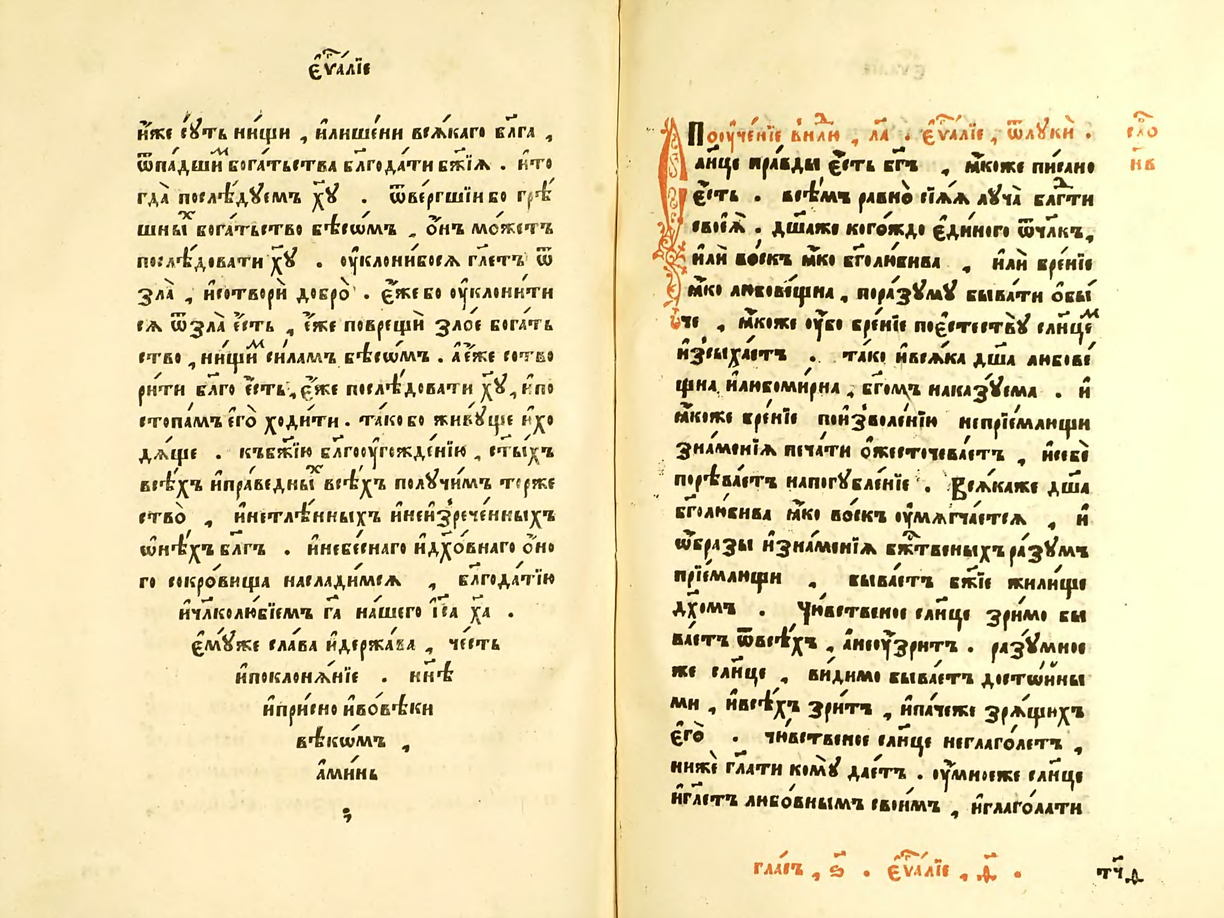 є҆ѵⷢ҇а́лїе
и҆́же сꙋ́ть ни́щи , и҆лише́ни всѧ́каго бл҃га ,
ѿпа́дшиⷨ бога́тьства бл҃года́ти бж҃їѧ . и҆то
гда̀ послѣ́дꙋемъ хⷭ҇ꙋ . ѿве́ргшїи бо грѣ
шныⷯ бога́тьство бѣсѡ́мъ , о҆́нъ мо́жетъ
послѣ́довати хⷭ҇ꙋ . ᲂу҆клони́босѧ гл҃етъ ѿ
зла̀ , и҆сотворѝ добро̀ . є҆́же бо ᲂу҆клони́ти
сѧ ѿзла̀ є҆́сть , є҆́же повре́щи зло́е бога́ть
ство , ни́щиⷨ си́ламъ бѣсѡ́мъ . а҆є҆́же сотво
ри́ти бл҃го є҆́сть , є҆́же послѣ́довати хⷭ҇ꙋ , и҆по
стопа́мъ є҆гѡ̀ ходи́ти . та́ко бо живꙋ́ще и҆хо
дѧ́ще . къбж҃їю бл҃гоᲂугожде́нїю , ст҃ы́хъ
всѣ́хъ и҆пра́ведныⷯ всѣ́хъ полꙋчи́мъ торже
ство̀ , и҆нетлѣ́нныхъ и҆неи҆зрече́нныхъ
ѡ҆нѣ́хъ бл҃гъ . и҆небе́снаго и҆дх҃о́внаго о҆но
го сокро́вища наслади́мсѧ , бл҃года́тїю
и҆чл҃колю́бїемъ гⷭ҇а на́шего і҆с҃а хⷭ҇а .
є҆мꙋ́же сла́ва и҆держа́ва , че́сть
и҆поклонѧ́нїе . нн҃ѣ
и҆при́сно и҆во́вѣки
вѣкѡ́мъ ,
а҆ми́нь
Поᲂуче́нїе внⷣе́ли , л҃а . є҆ѵⷢ҇а́лїе , ѿлꙋкѝ .
сл҃о
н҃в
сл҃нце пра́вды є҆́сть бг҃ъ , ꙗ҆́коже пи́сано
є҆́сть . всѣ́мъ ра́вно сїѧ́ѧ лꙋча̀ бл҃гⷣти
своеѧ̀ . дш҃а́же коего́ждо є҆ди́ного ѿчл҃къ ,
и҆лѝ во́скъ ꙗ҆́ко бг҃олюби́ва , и҆лѝ бре́нїе
ꙗ҆́ко любове́щна , пора́зꙋмꙋ быва́ти ѻ҆бы́
че , ꙗ҆́коже ᲂу҆́бо бре́нїе поє҆стествꙋ̀ сл҃нцеⷨ
и҆зсыха́етъ . та́ко и҆всѧ́ка дш҃а любове́
щна и҆любоми́рна , бг҃омъ наказꙋ́ема . и҆
ꙗ҆́коже бре́нїе поизволе́нїю непрїе́млющи
зна́менїѧ печа́ти ѡ҆жесточева́етъ , и҆себѐ
порѣва́етъ напогꙋбле́нїе . Всѧ́каже дш҃а
бг҃олюби́ва ꙗ҆́ко во́скъ ᲂу҆мѧгча́етсѧ , и҆
ѡ҆́бразы и҆зна́менїѧ бжⷭ҇твеныхъ ра́зꙋмъ
прїе́млющи , быва́етъ бж҃їе жили́ще
дх҃омъ . Чю́вственое сл҃нце зри́мо бы
ва́етъ ѿвсѣ́хъ , а҆неᲂу҆́зритъ . ра́зꙋмное
же сл҃нце , ви́димо быва́етъ досто́йны
ми , и҆всѣ́хъ зри́тъ , и҆па́чеже зрѧ́щихъ
є҆го̀ . чю́вственое сл҃нце неглаго́летъ ,
ниже гл҃ати комꙋ̀ дае́тъ . ᲂу҆́мноеже сл҃нце
и҆гл҃етъ любо́внымъ свои́мъ , и҆глаго́лати
гла́съ , ѕ҃ . є҆ѵⷢ҇а́лїе , д҃ .
тч҃д